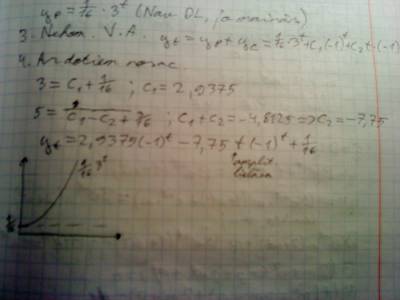 yp = 1/16 · 3^t (Nav DL, jo mainās)
3. Nehom. V.A. yt = yp + yc = 1/16 · 3^t + C1(-1)^t + C2 t(-1)^t
4. Ar dotiem nosac.
3 = C1 + 1/16 ; C1 = 2,9375
5 = -C1 - C2 + 3/16 ; C1 + C2 = -4,8125 => C2 = -7,75
yt = 2,9375(-1)^t - 7,75 t(-1)^t + 1/16
1/16 3^t
amplit.
lielāka
1/16